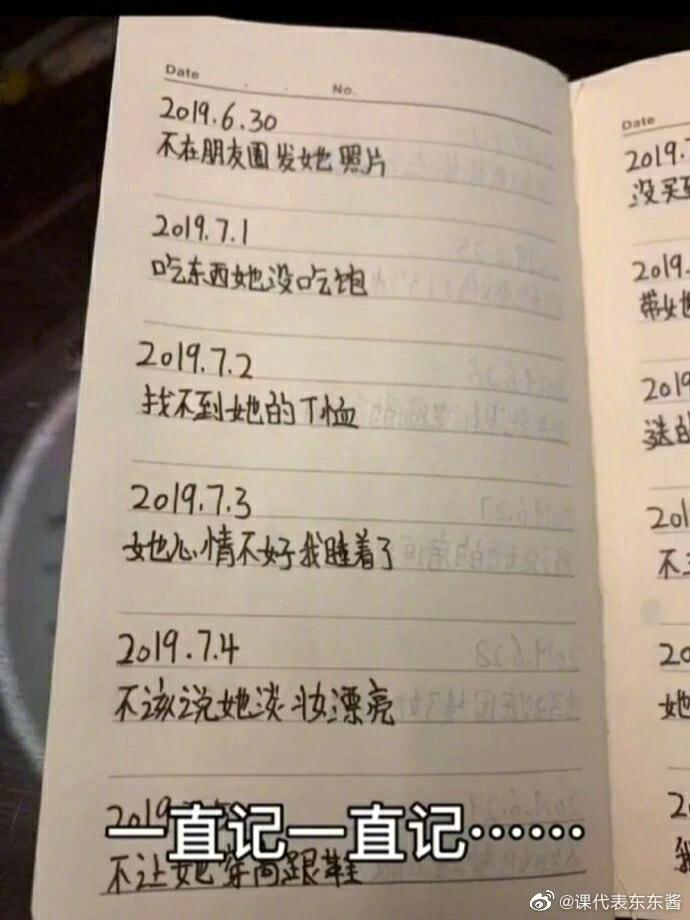 Date
No.
2019.6.30
不在朋友圈发她照片
2019.7.1
吃东西她没吃饱
2019.7.2
找不到她的T恤
2019.7.3
她心情不好我睡着了
2019.7.4
不该说她淡妆漂亮
2019
不让她穿高跟鞋
一直记一直记……
Date
2019.7
没买到
2019.
带她
2019
送的
201
不
20
她
2
我
@课代表东东酱